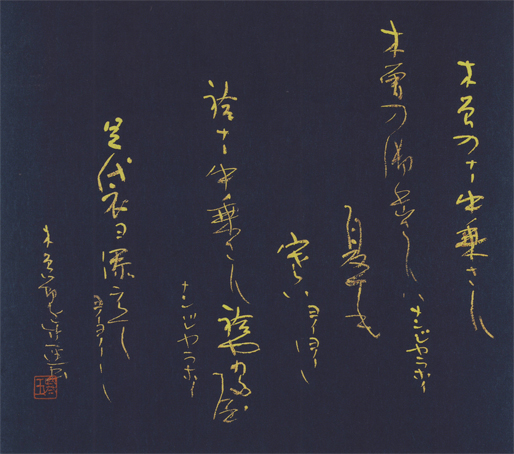 木曽のナー中乗さん
木曽の御岳さんハナンジャラホイ
夏でも
寒いヨイヨイヨイ
袷ナー中乗さん 袷や
ナンジャラホイ
足袋ヨ添えて
ヨイヨイヨイ
木曽節